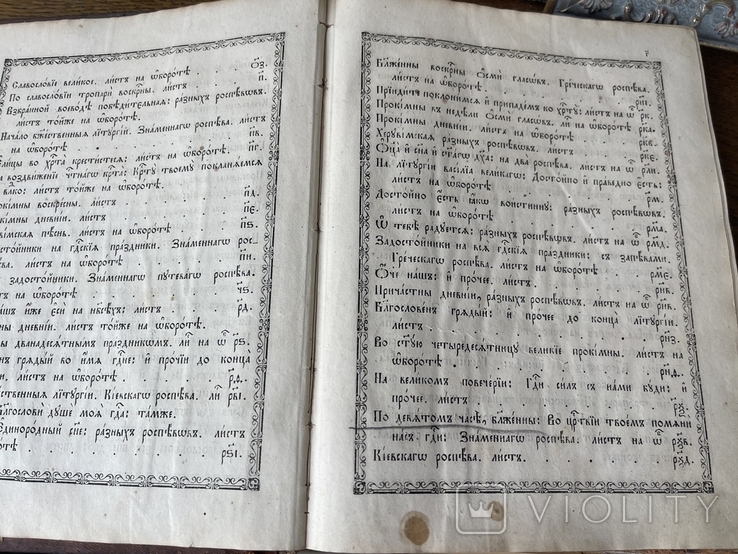 Славословїе великое. листъ на ѡборотѣ . о҃з.
По славословїи тропари воскрⷭ҇ны. листъ . п҃.
Взбранной воеводѣ побѣдительнаѧ: разныхъ роспѣвѡвъ.
листъ тойже на ѡборотѣ.
Начало бж҃ественныѧ лїтꙋргїи. Знаменнагѡ роспѣва. листъ
на ѡборотѣ . п҃в.
Елицы во хрⷭ҇та крестистесѧ: листъ на ѡборотѣ. п҃г.
На воздвиженїи чⷭ҇тнагѡ крⷭ҇та: Крⷭ҇тꙋ твоемꙋ покланѧемсѧ
влⷣко: листъ тойже на ѡборотѣ.
воскрⷭ҇ны. листъ . п҃д.
дневнїи. листъ . п҃є.
пѣснь. листъ на ѡборотѣ . п҃ѕ.
на гдⷭ҇скїѧ праздники. Знаменнагѡ рос-
листъ на ѡборотѣ . п҃и.
задостойники. Знаменнагѡ пꙋтевагѡ роспѣва.
на ѡборотѣ . ч҃ѕ.
иже еси на нб҃сѣхъ: листъ . р҃д.
дневни. листъ тойже на ѡборотѣ.
дванадесѧтнымъ праздникомъ. лиⷭ҇ на ѡⷡ҇ р҃ѕ.
грѧдый во имѧ гдⷭ҇не: и прочїи до конца
листъ на ѡборотѣ .
лїтꙋргїи. Кїевскагѡ роспѣва. лиⷭ҇ рв҃і.
Благослови дꙋше моѧ гдⷭ҇а: тамже.
Единородный сн҃е: разныхъ роспѣвѡвъ. листъ
рѕ҃і.
Блаженны воскрⷭ҇ны осми гласѡвъ. Греческагѡ роспѣва.
листъ на ѡборотѣ . ри҃і.
Прїидите поклонимсѧ и припадемъ ко хрⷭ҇тꙋ: листъ на ѡⷡ҇ р҃к.
Прокїмны въ недѣли осми гласѡвъ. лиⷭ҇ на ѡборотѣ рк҃а.
Прокїмны дневнїи. листъ на ѡборотѣ . рк҃в.
Херꙋвїмскаѧ разныхъ роспѣвѡвъ. листъ . рк҃є.
Оц҃а и сн҃а и ст҃агѡ дх҃а: на два роспѣва. листъ на ѡⷡ҇
На лїтꙋргїи василїа великагѡ: Достойно и праведно есть:
листъ на ѡборотѣ . р҃м.
Достойно есть ꙗкѡ воистиннꙋ: разныхъ роспѣвѡвъ.
листъ на ѡборотѣ . рм҃а.
Ѡ тебѣ радꙋетсѧ: разныхъ роспѣвѡвъ. листъ на ѡⷡ҇ рм҃д.
Задостойники на всѧ гдⷭ҇скїѧ праздники: съ запѣвами.
Греческагѡ роспѣва. листъ на ѡборотѣ . рм҃є.
Оч҃е нашъ: и прочее. листъ . рн҃в.
Причастны дневнїи, разныхъ роспѣвѡвъ. листъ на ѡⷡ҇ рн҃в.
Благословенъ грѧдый: и прочее до конца лїтꙋргїи.
листъ . рн҃з.
Во ст҃ꙋю четыредесѧтницꙋ великїе прокїмны. листъ на
ѡборотѣ .
На великомъ повечерїи: Гдⷭ҇и силъ съ нами бꙋди: и
прочее. листъ .
По девѧтомъ часѣ, блаженны: Во црⷭ҇твїи твоемъ помѧни
насъ гдⷭ҇и: Знаменнагѡ роспѣва. листъ на ѡⷡ҇ рѯ҃в.
Кїевскагѡ роспѣва. листъ . рѯ҃д.
VIOLITY